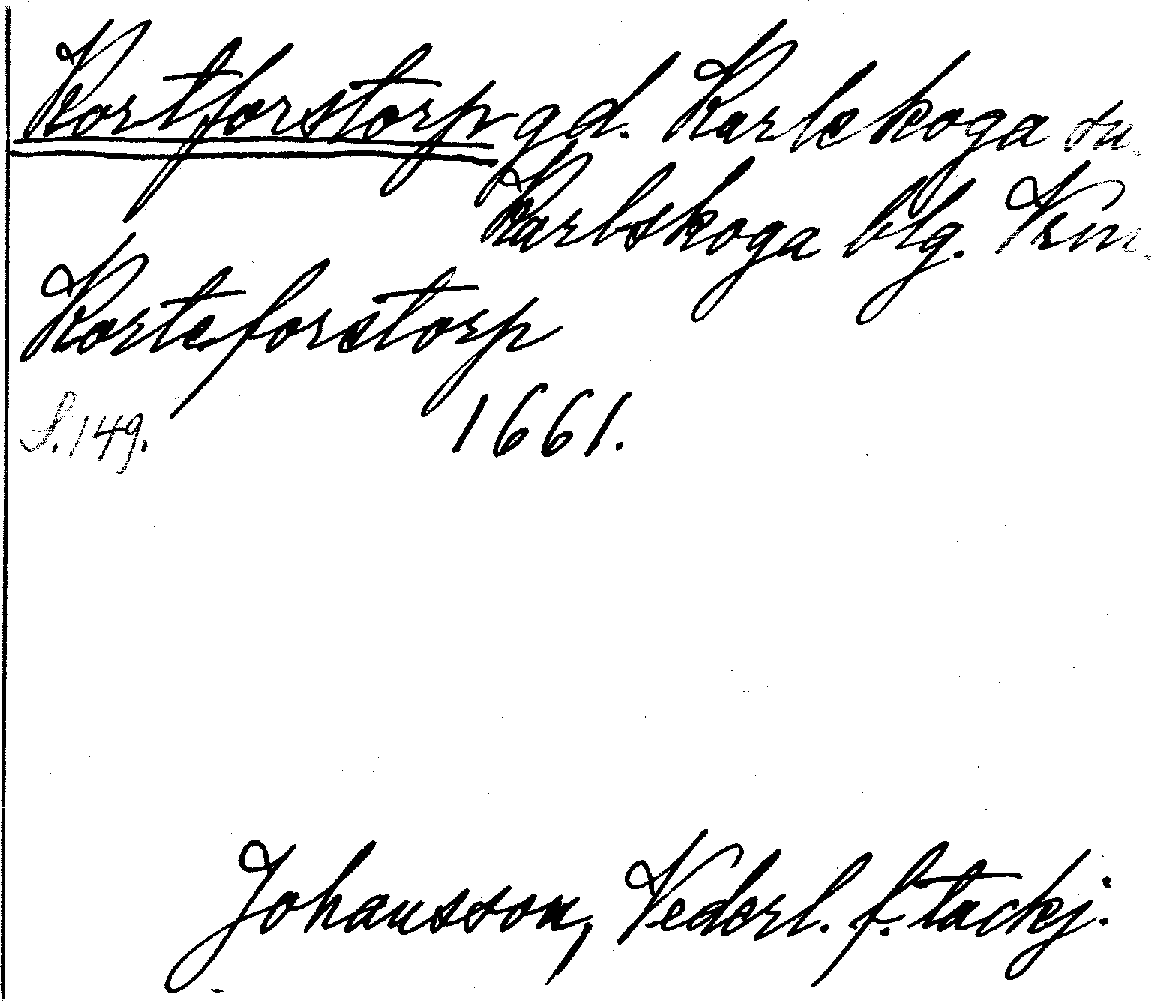 Kortforstorp gd. Karlskoga sn.
Karlskoga blg. Vrm.
Korteforstorp
S. 149. 1661.
Johansson, Vederl. f. tackj.